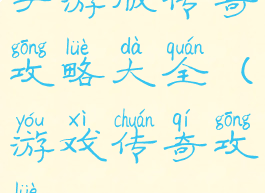 游版传奇
gōng lüè dà quán
攻略大全（
yóu xì chuán qí gōng
游戏传奇攻
lüè